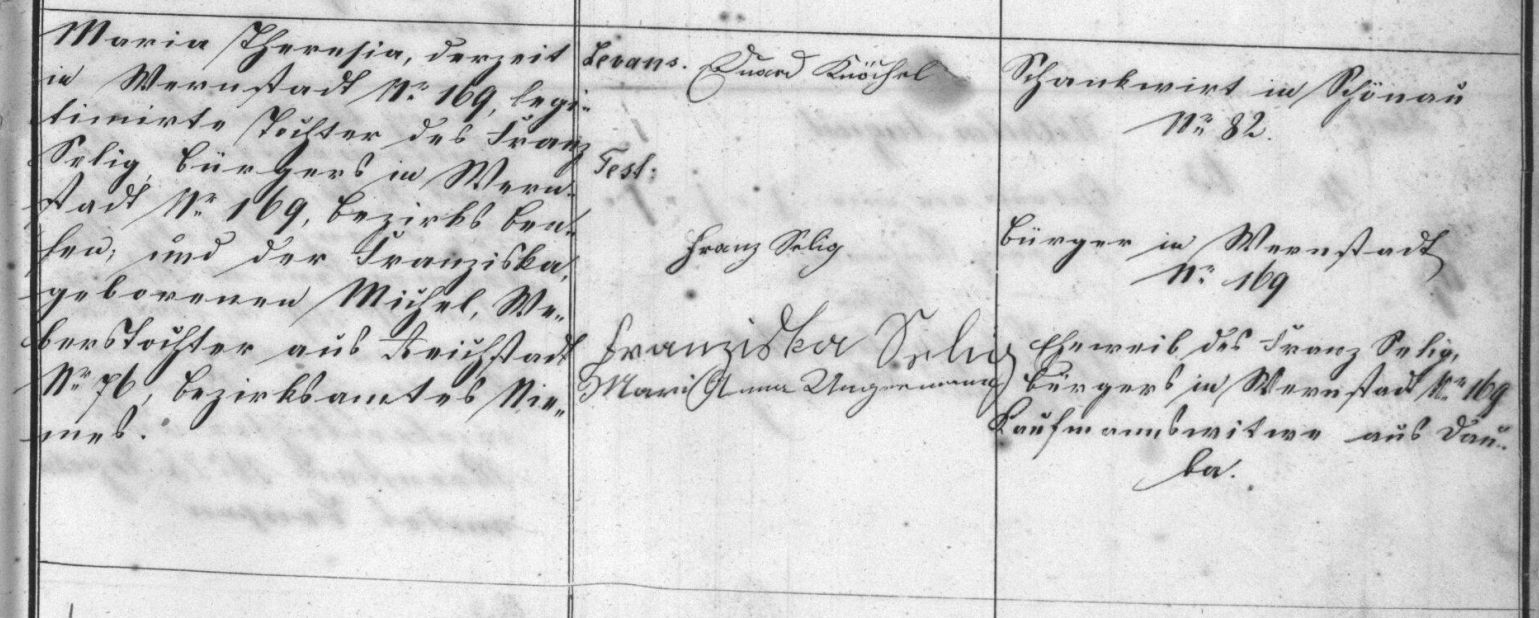 Maria Theresia, derzeit
in Wernstadt Nr 169, legi-
timirte Tochter des Franz
Selig, Bürgers in Wern-
stadt Nr 169, Bezirks Ben-
sen, und der Franziska,
geborenen Michel, We-
berstochter aus Reichstadt
Nr 76, Bezirksamtes Nie-
mes.
Levans. Eduard Knöchel
Test:
Franz Selig
Franziska Selig
Maria Anna Ungermann
Schankwirt in Schönau
Nr 82.
Bürger in Wernstadt
Nr 169
Eheweib des Franz Selig,
Bürgers in Wernstadt Nr 169
Kaufmannswitwe aus Dau-
ba.